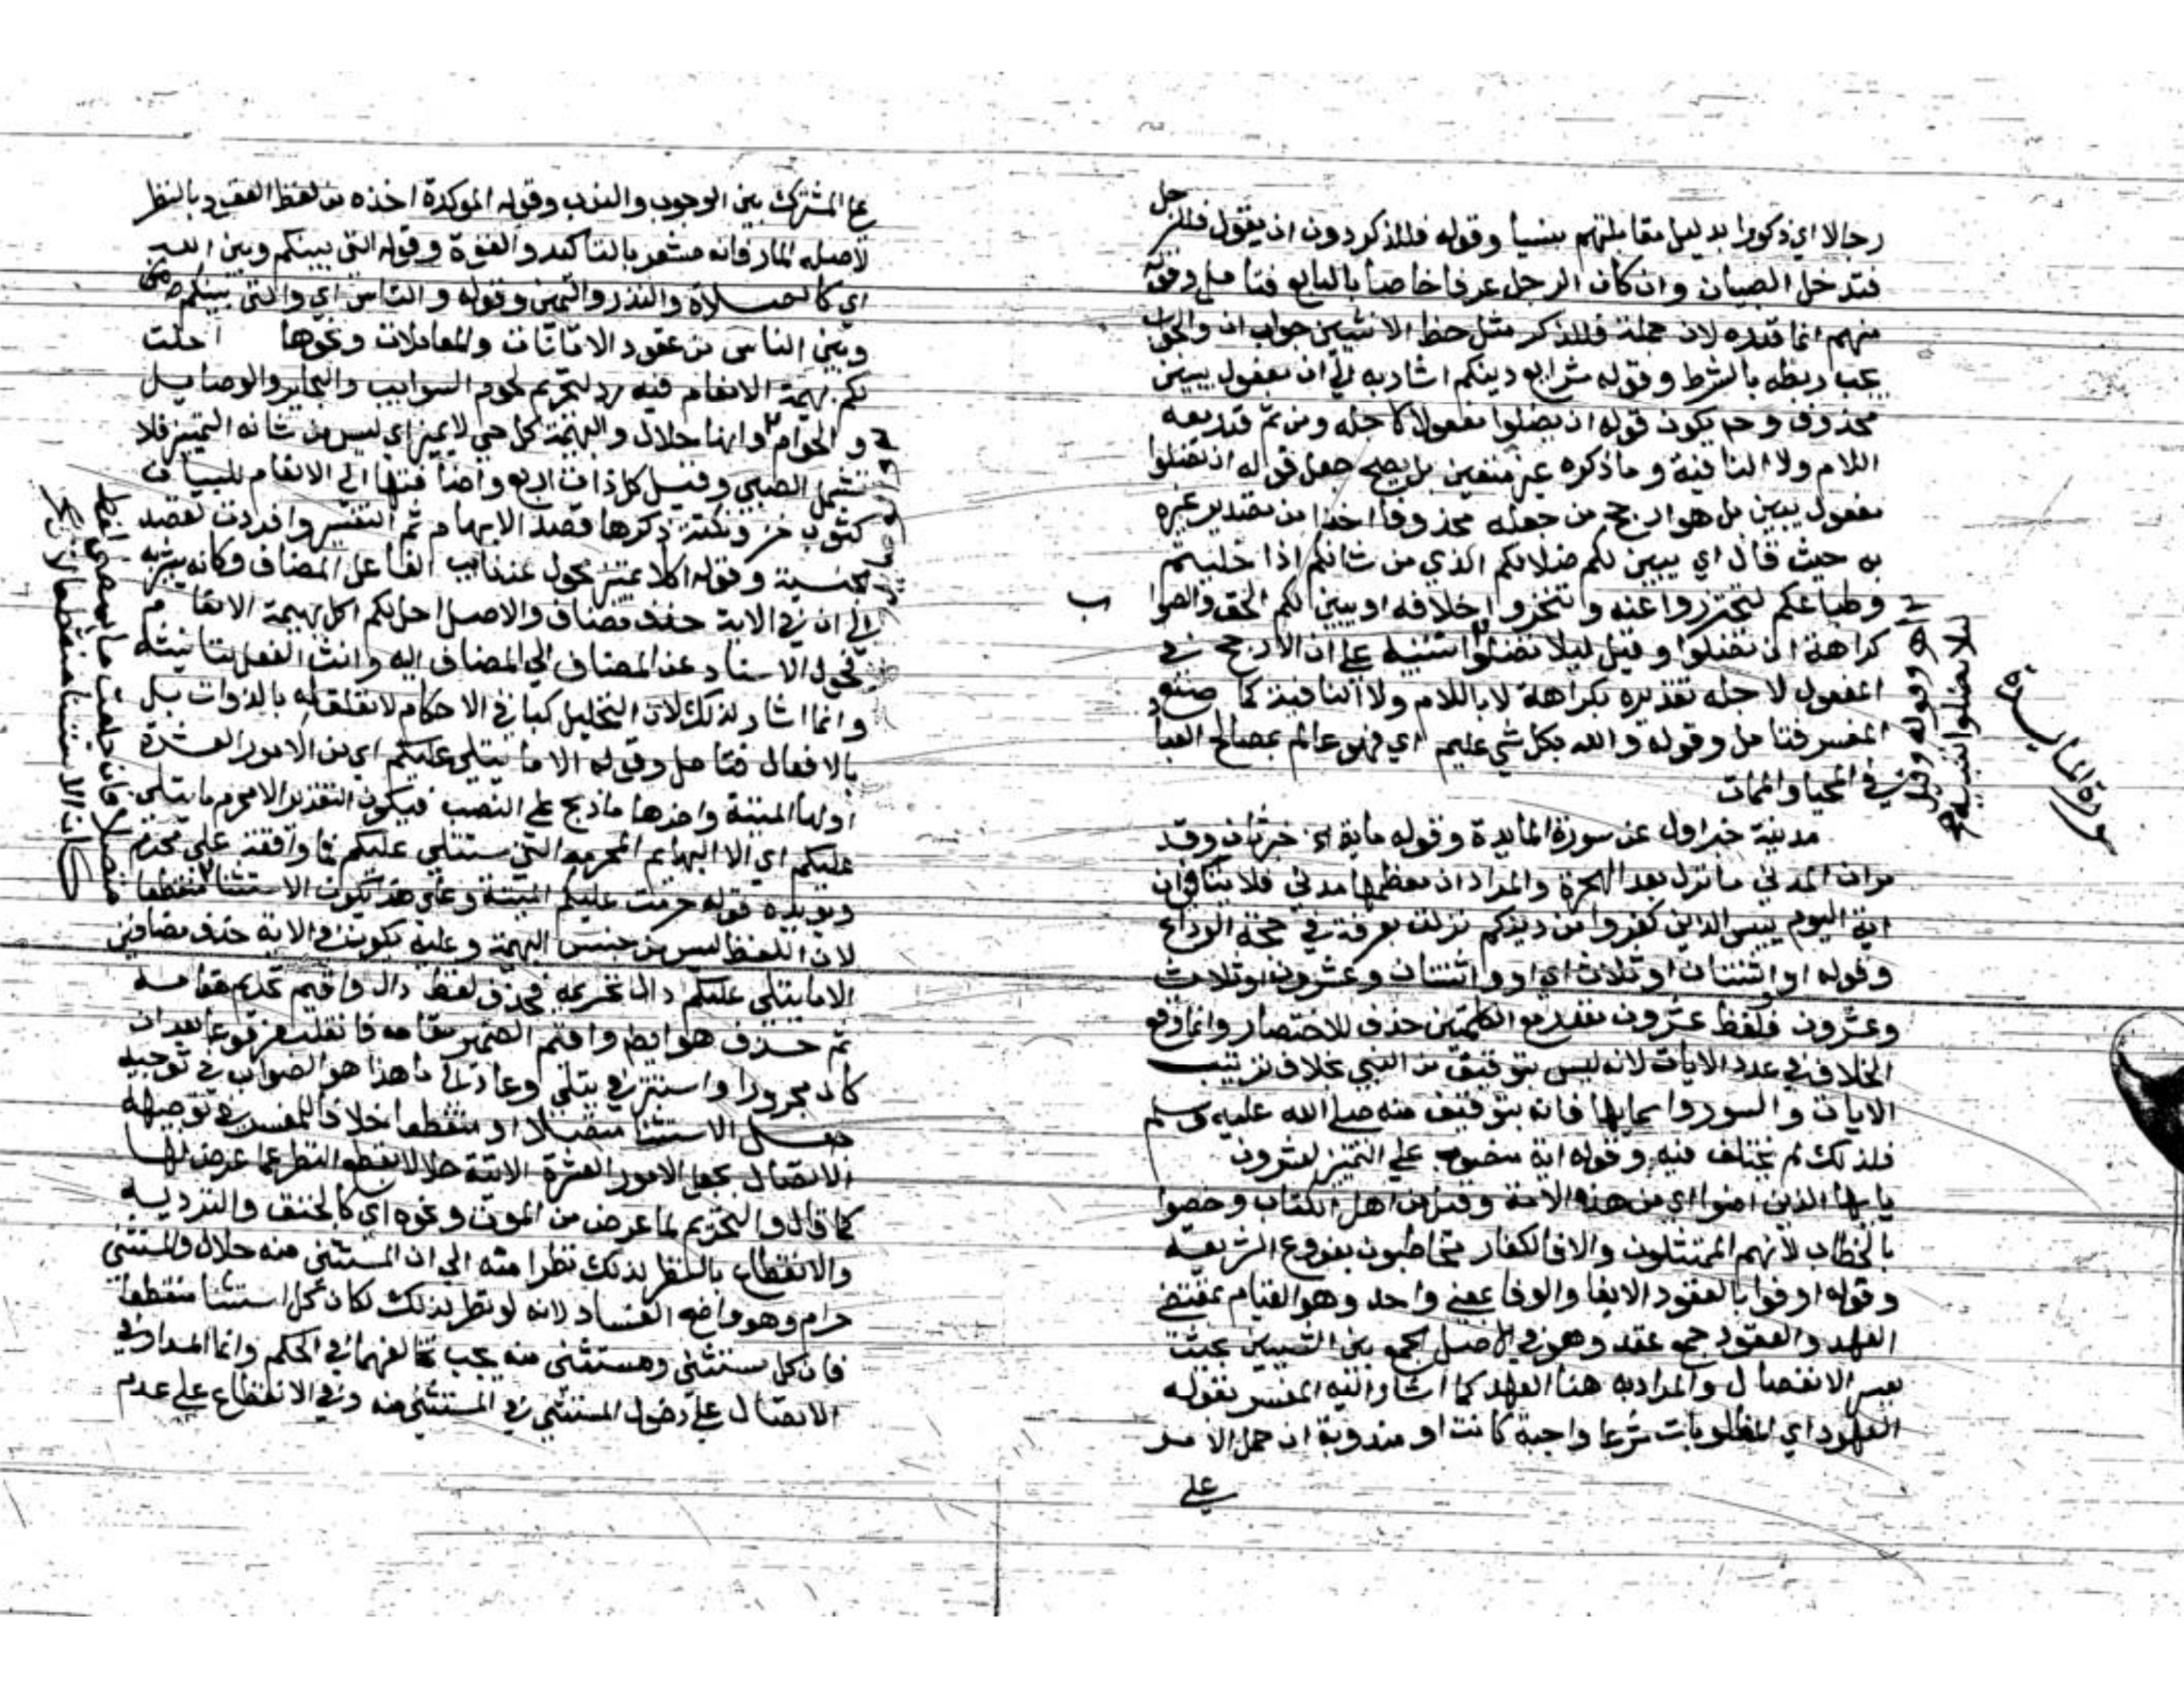 رجالا اي ذكورا بدليل مقابلتهم بنسبا وقوله فللذكر دون ان يقول فللرجل
فتدخل الصبيان وان كان الرجل عرفا خاصا بالبالغ فتامل وقوله
منهم انما قدره لان جملة فللذكر مثل حظ الانثيين جواب ان والجواب
يجب ربطه بالشرط وقوله شرايع دينكم اشار به الي ان مفعول يبين
محذوف وح يكون قوله ان تضلوا مفعولا لاجله ومن ثم قدر بعه
اللام ولا النافية وما ذكره غير متعين بل يصح جعل قوله ان تضلوا
مفعول يبين بل هو ارجح من جعله محذوفا اخذا من تقدير غيره
به حيث قال اي يبين لكم ضلالكم الذي من شانكم اذا خليتم
وطباعكم لتحترزوا عنه وتتحروا خلافه او يبين لكم الحق والصوا
ب
كراهة ان تضلوا وقيل ليلا تضلوا تنبيه علي ان الارجح في
المفعول لاجله تقديره بكراهة لا باللام ولا النافية كما صنع
المفسر فتامل وقوله والله بكل شي عليم اي فهو عالم بمصالح العبا
د في المحيا والممات
وقوله وقيل
لا تضلوا تنبيه
سورة المايدة
مدنية خبر اول عن سورة المايدة وقوله ماية الخ خبر ثان وقد
مر ان المدني ما نزل بعد الهجرة والمراد ان معظمها مدني فلا ينافي ان
اية اليوم ييس الذين كفروا من دينكم نزلت بعرفة في حجة الوداع
وقوله او اثنتان او ثلاث اي او واثنتان وعشرون او وثلاث
وعشرون فلفظ عشرون مقدر مع الكلمتين حذف للاختصار وانما وقع
الخلاف في عدد الايات لانه ليس بتوقيف من النبي بخلاف ترتيب
الايات والسور واسمايها فانه بتوقيف منه صلي الله عليه وسلم
فلذلك لم يختلف فيه وقوله اية منصوب علي التمييز لعشرون
يا ايها الذين امنوا اي من هذه الامة وقيل من اهل الكتاب وخصوا
بالخطاب لانهم الممتثلون والا فالكفار مخاطبون بفروع الشريعة
وقوله اوفوا بالعقود الايفا والوفا بمعني واحد وهو القيام بمقتضي
العهد والعقود جمع عقد وهو في الاصل الجمع بين الشيين بحيث
يعسر الانفصال والمراد به هنا العهد كما اشار اليه المفسر بقوله
العهود اي المطلوبات شرعا واجبة كانت او مندوبة ان حمل الامر
علي
علي المشترك بين الوجوب والندب وقوله الموكدة اخذه من لفظ العقود بالنظر
لاصله المار فانه مشعر بالتاكيد والقوة وقوله التي بينكم وبين الله
اي كالصلاة والنذر واليمين وقوله والناس اي والتي بينكم
وبين الناس من عقود الامانات والمعاملات ونحوها احلت
لكم بهيمة الانعام فيه رد لتحريم لحوم السوايب والبحاير والوصايل
والحوام وانها حلال والبهيمة كل حي لا يميز اي ليس من شانه التمييز فلا
تشمل الصبي وقيل كل ذات اربع واضافتها الي الانعام للبيان
كثوب خز ونكتة ذكرها قصد الابهام ثم التفسير وافردت لقصد
الجنسية وقوله اكلا تمييز محول عن نايب الفاعل المضاف وكانه يشير به
الي ان في الاية حذف مضاف والاصل احل لكم اكل بهيمة الانعام
فحول الاسناد عن المضاف الي المضاف اليه وانث الفعل لتانيثه
وانما اشار لذلك لان التحليل كباقي الاحكام لا تعلق له بالذوات بل
بالافعال فتامل وقوله الا ما يتلي عليكم اي من الامور العشرة
اولها الميتة واخرها ما ذبح علي النصب فيكون التقدير الا محرم ما يتلي
عليكم اي الا البهايم المحرمة التي ستتلي عليكم
ويويده قوله حرمت عليكم الميتة وعلي هذا يكون الاستثنا منقطعا
لان اللفظ ليس من جنس البهيمة وعليه يكون في الاية حذف مضافين
الا ما يتلي عليكم دال تحريمه فحذف لفظ دال واقيم تحريم مقامه
ثم حذف هو ايضا واقيم الضمير مقامه فانقلب مرفوعا بعد ان
كان مجرورا واستتر في يتلي وعاد لما هذا هو الصواب في توجيه
جعل الاستثنا متصلا او منقطعا خلافا للمفسر في توجيهه
الاتصال بجعل الامور العشرة الاتية حلالا بقطع النظر عما عرض لها
كما قال والتحريم لما عرض من الموت ونحوه اي كالخنق والتردية
والانقطاع بالنظر لذلك نظرا منه الي ان المستثني منه حلال والمستثني
حرام وهو واضح الفساد لانه لو نظر لذلك لكان كل استثنا منقطعا
فان كل مستثني ومستثني منه يجب تخالفهما في الحكم وانما المدار في
الاتصال علي دخول المستثني في المستثني منه وفي الانقطاع علي عدم